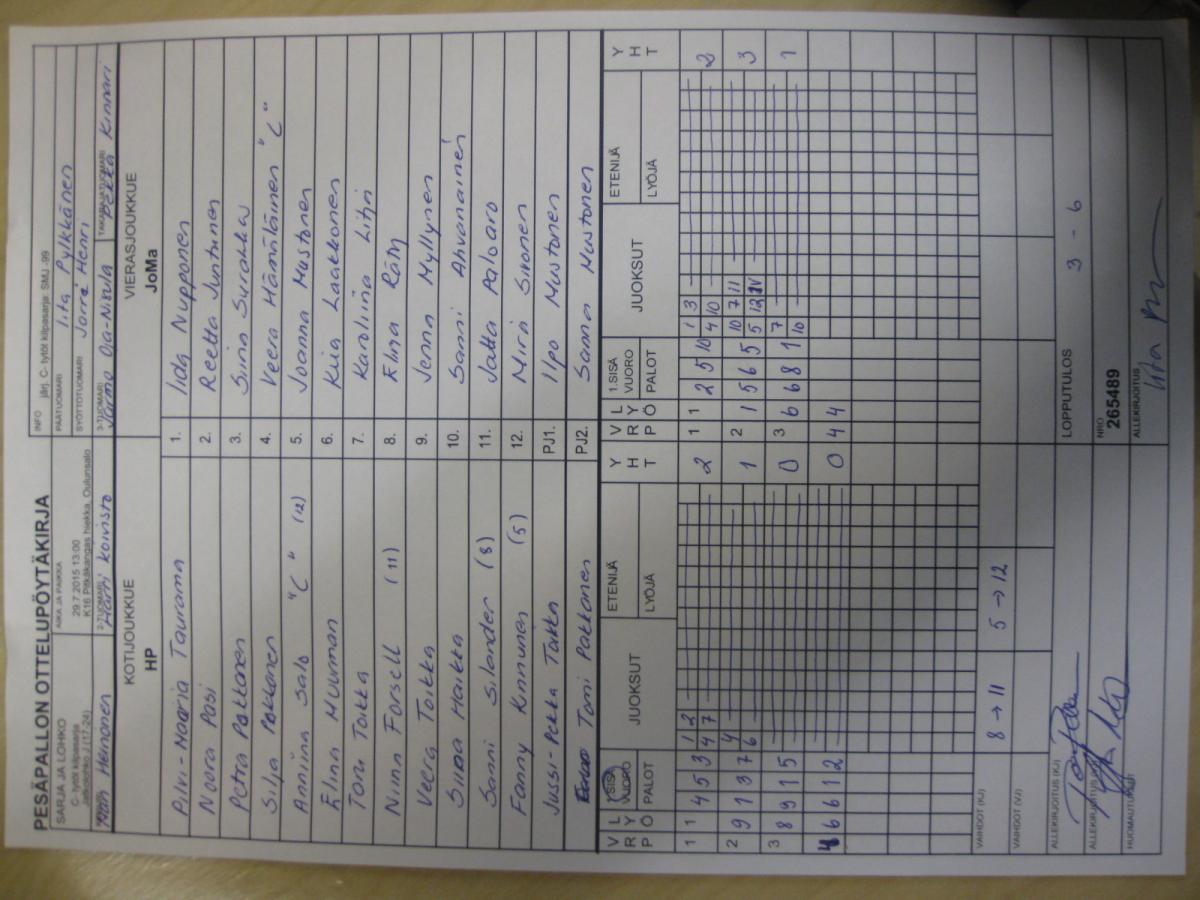 PESÄPALLON OTTELUPÖYTÄKIRJA
SARJA JA LOHKO
C- tytöt kilpasarja
Jatkolohko J (17-24)
AIKA JA PAIKKA
29.7.2015 13:00
K16 Pekäkangas hiekka, Oulunsalo
INFO järj. C- tytöt kilpasarja SMJ -99
PÄÄTUOMARI Iita Pylkkänen
SYÖTTÖTUOMARI Jorma Henri
Heinonen
2-TUOMARI Harri Koivisto
3-TUOMARI Jarmo Oja-Nikula
TAKARAJATUOMARI Pekka Kinnari
KOTIJOUKKUE
HP
VIERASJOUKKUE
JoMa
Pilvi-Maaria Taurama 1. Iida Nupponen
Noora Pasi 2. Reetta Juntunen
Petra Pakkanen 3. Siiri Surakka
Silja Pakkanen 4. Veera Hämäläinen "C"
Anniina Salo "C" (12) 5. Joanna Mustonen
Elina Muurman 6. Kiia Laakkonen
Toru Toikka 7. Karoliina Lihri
Niina Forsell (11) 8. Elina Räty
Veera Toikka 9. Jenna Myllynen
Siipa Haikka 10. Sanni Ahvonainen
Sanni Silander (8) 11. Jatta Paloaro
Fanny Kinnunen (5) 12. Miri Sikonen
Jussi-Pekka Takka PJ1. Ilpo Mustonen
Tomi Pakkanen PJ2. Sanna Mustonen
VRP LYÖ 1.SISÄ VUORO PALOT JUOKSUT ETENIJÄ LYÖJÄ YHT VRP LYÖ 1.SISÄ VUORO PALOT JUOKSUT ETENIJÄ LYÖJÄ YHT
1 1 4 5 3 1 2 2 1 1 2 5 10 1 3 2
4 7 4 10
2 9 1 3 7 4 1 2 1 5 6 5 10 7 11 3
6 5 12
3 8 9 1 5 0 3 6 6 8 1 7 1
10
4 6 6 1 2 0 4 4
VAIHDOT (KJ) 8 → 11 5 → 12
VAIHDOT (VJ)
LOPPUTULOS 3 - 6
ALLEKIRJOITUS (KJ)
ALLEKIRJOITUS (VJ)
NRO
265489
HUOMAUTUKSET
ALLEKIRJOITUS